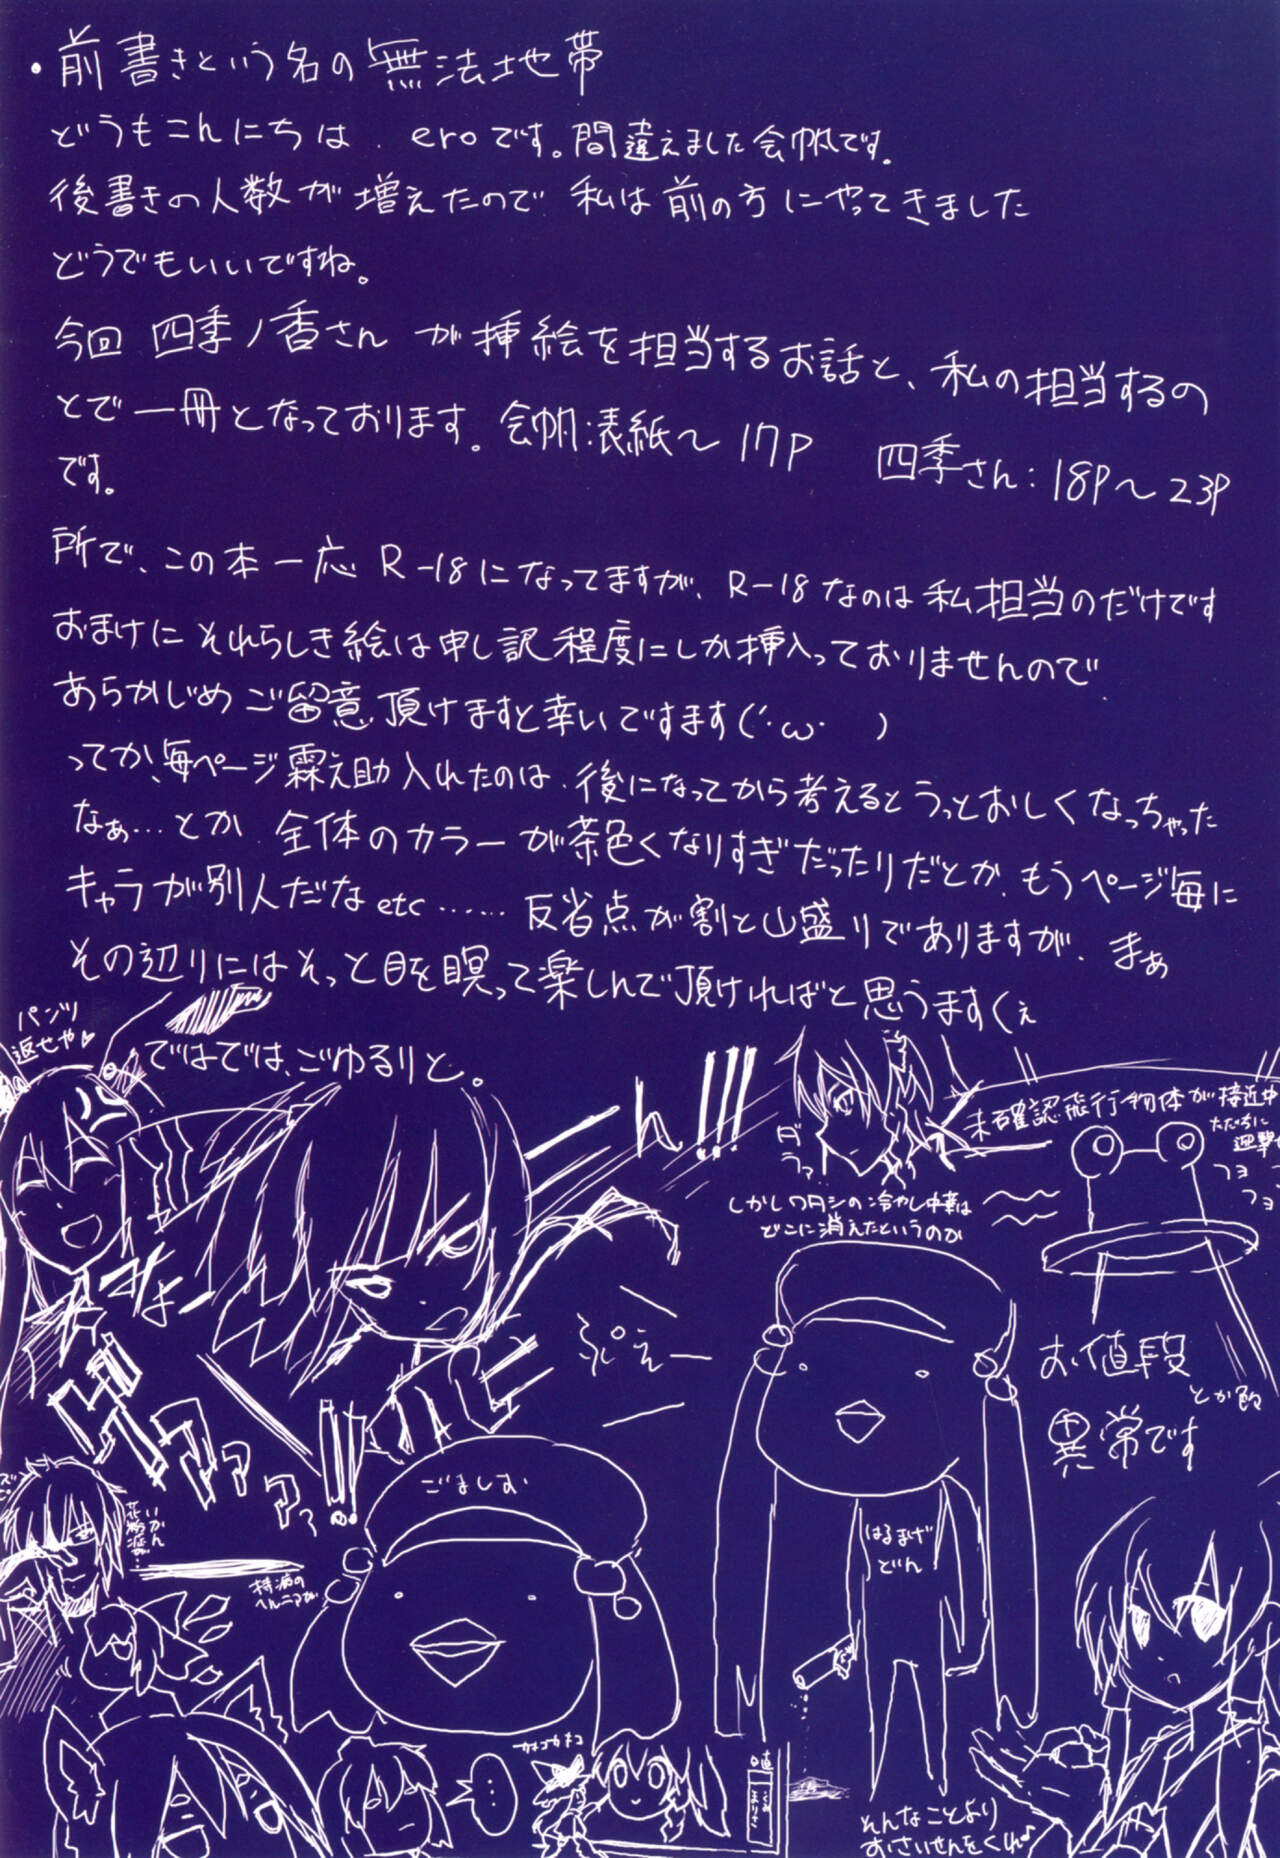 ・前書きという名の無法地帯
どうもこんにちは、eroです。間違えました会帆です。
後書きの人数が増えたので、私は前の方にやってきました
どうでもいいですね。
今回 四季ノ香さん が挿絵を担当するお話と、私の担当するの
とで一冊となっております。会帆:表紙〜17P 四季さん:18P〜23P
です。
所で、この本一応R-18になってますが、R-18なのは私担当のだけです
おまけにそれらしき絵は申し訳程度にしか挿入っておりませんので
あらかじめご留意頂けますと幸いですます(´･ω･　)
ってか、毎ページ霖之助入れたのは、後になってから考えるとうっとおしくなっちゃった
なぁ…とか、全体のカラーが茶色くなりすぎだったりだとか、もうページ毎に
キャラが別人だなetc……反省点が割と山盛りでありますが、まぁ
その辺りにはそっと目を瞑って楽しんで頂ければと思うますくぇ
ではでは、ごゆるりと。
パンツ
返せや♥
ん!!!
ダラッ
未確認飛行物体が接近中
ただちに
迎撃
フヨ
フヨ
しかしワタシの冷やし中華は
どこに消えたというのか
ぷえー
お値段
とか
異常です
ごましお
はるまげ
どん
いかん
花粉症が…
持病の
ヘルニアが
…
そんなことより
おさいせんをくれ♪